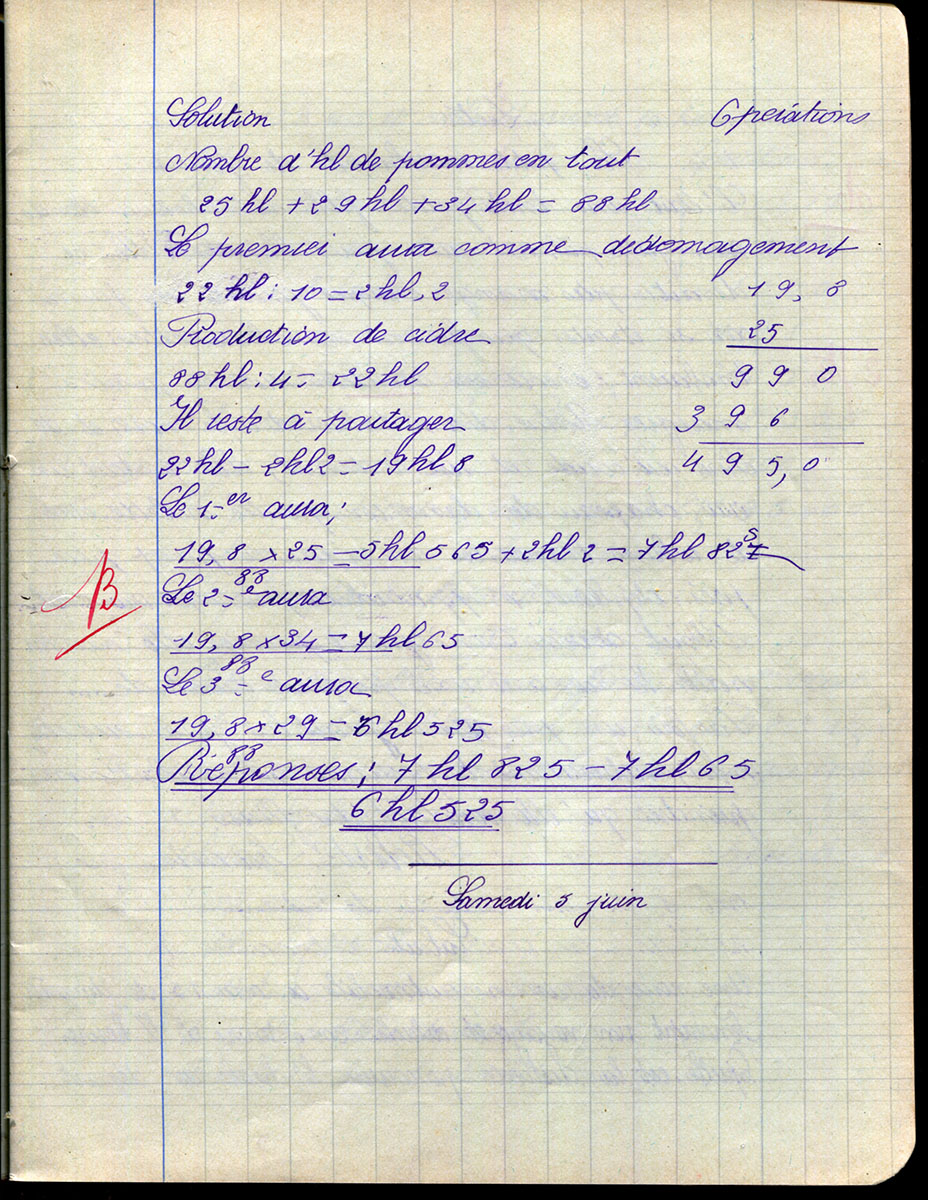 Solution Opérations
Nombre d'hl de pommes en tout
25 hl + 29 hl + 34 hl = 88 hl
Le premier aura comme dédomagement
22 hl : 10 = 2 hl, 2
19,8
Production de cidre
25
88 hl : 4 = 22 hl
990
Il reste à partager
396
22 hl - 2 hl 2 = 19 hl 8
495,0
Le 1er aura ;
19,8 × 25 = 5 hl 565 + 2 hl 2 = 7 hl 825
88
Le 2e aura
19,8 × 34 = 7 hl 65
88
Le 3e aura
19,8 × 29 = 6 hl 525
88
Réponses ; 7 hl 825 - 7 hl 65
6 hl 525
Samedi 5 juin
B